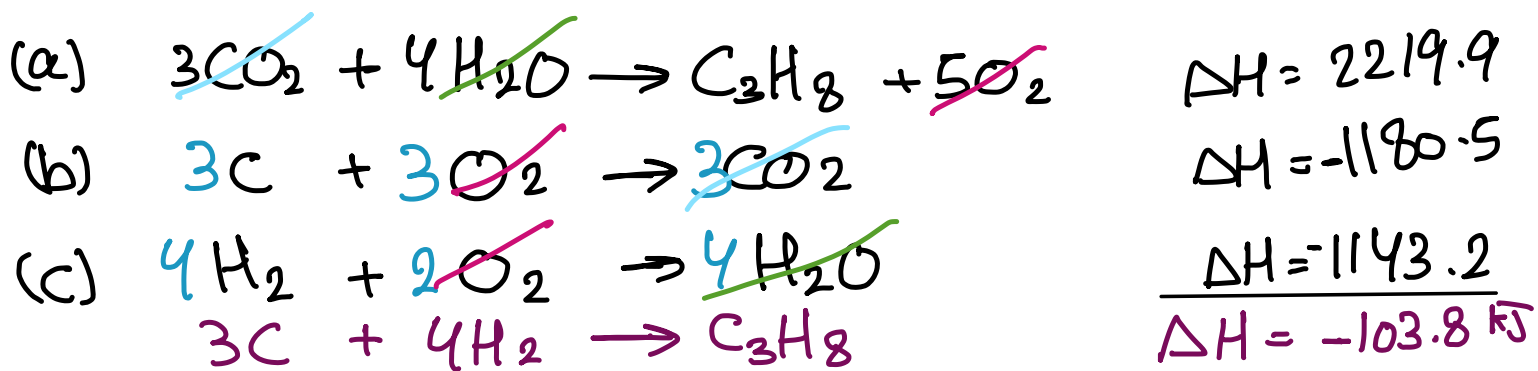 (a) 3CO₂ + 4H₂O → C₃H₈ + 5O₂ ΔH = 2219.9
(b) 3C + 3O₂ → 3CO₂ ΔH = -1180.5
(c) 4H₂ + 2O₂ → 4H₂O ΔH = -1143.2
3C + 4H₂ → C₃H₈ ΔH = -103.8 KJ